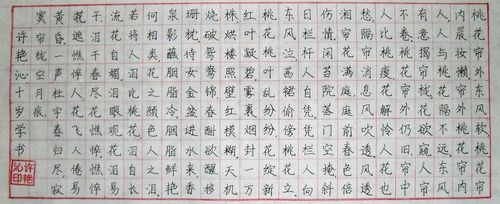 桃花帘外东风软桃花帘
内晨妆懒帘外桃花帘内
人人与桃花隔不远东风
有意揭帘栊花欲窥人帘
不卷桃花帘外开仍旧帘中
人比桃花瘦花解怜人花也
愁隔帘消息风吹透风透
湘帘花满庭庭前春色倍
伤情闲苔院落门空掩斜
日栏杆人自凭凭栏人向
东风泣茜裙偷傍桃花立
桃花桃叶乱纷纷花绽新
红叶凝碧雾裹烟封一万
株烘楼照壁红模糊天机
烧破鸳鸯锦春酣欲醒移
珊枕侍女金盆进水来香
泉影蘸胭脂冷胭脂鲜艳
何相类花之颜色人之泪
若将人泪比桃花泪自长
流花自媚泪眼观花泪易
干泪干春尽花憔悴憔悴
花遮憔悴人花飞人倦易
黄昏一声杜宇春归尽寂
寞帘栊空月痕
许艳沁十岁学书
许艳沁印